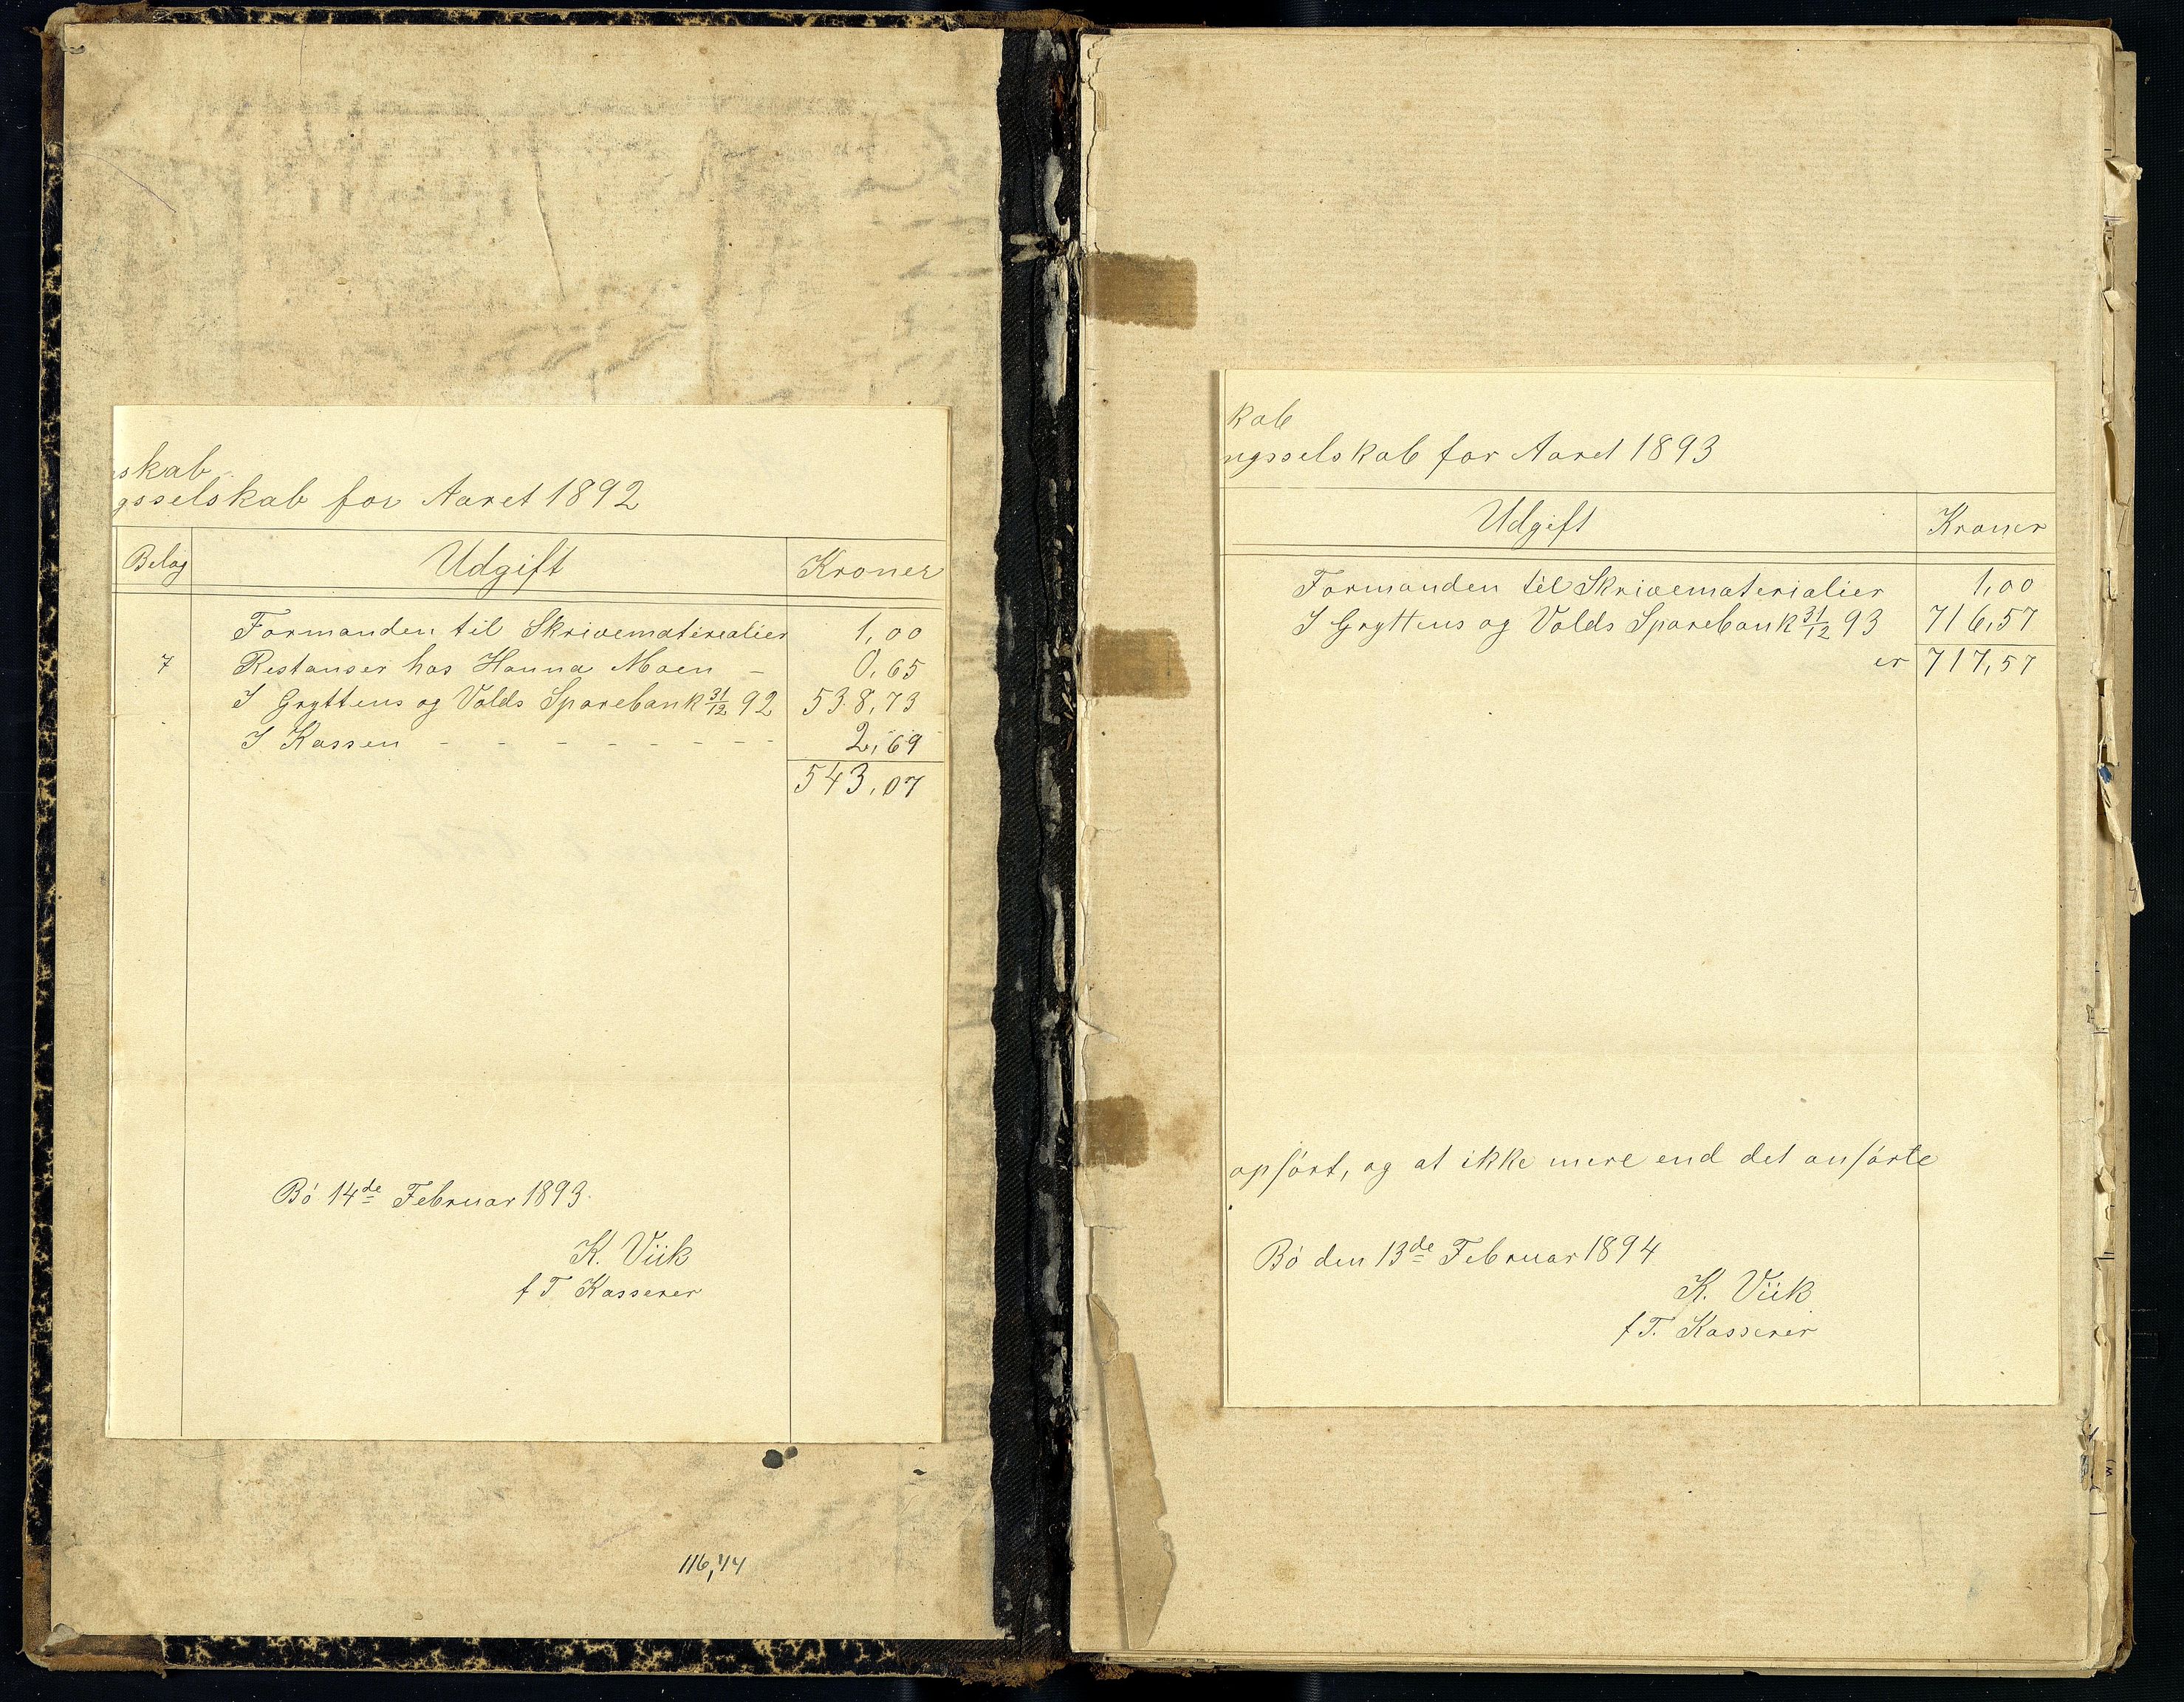 skab
gsselskab for Aaret 1892
Belag Udgift Kroner
Formanden til Skrivematirealier 1,00
7 Restanser hos Hanna Moen - 0,65
I Gryttens og Volds Sparebank 31/12 92 538,73
I Kassen - - - - - - - - 2,69
543,07
Bö 14de Februar 1893.
K. Viik
f T Kasserer
116,44
kab
ngsselskab for Aaret 1893
Udgift Kroner
Formanden til Skrivematerialier 1,00
I Gryttens og Volds Sparebank 31/12 93 716,57
er 717,57
opført, og at ikke mere end det anførte
Bö den 13de Februar 1894
K. Viik
f T. Kasserer